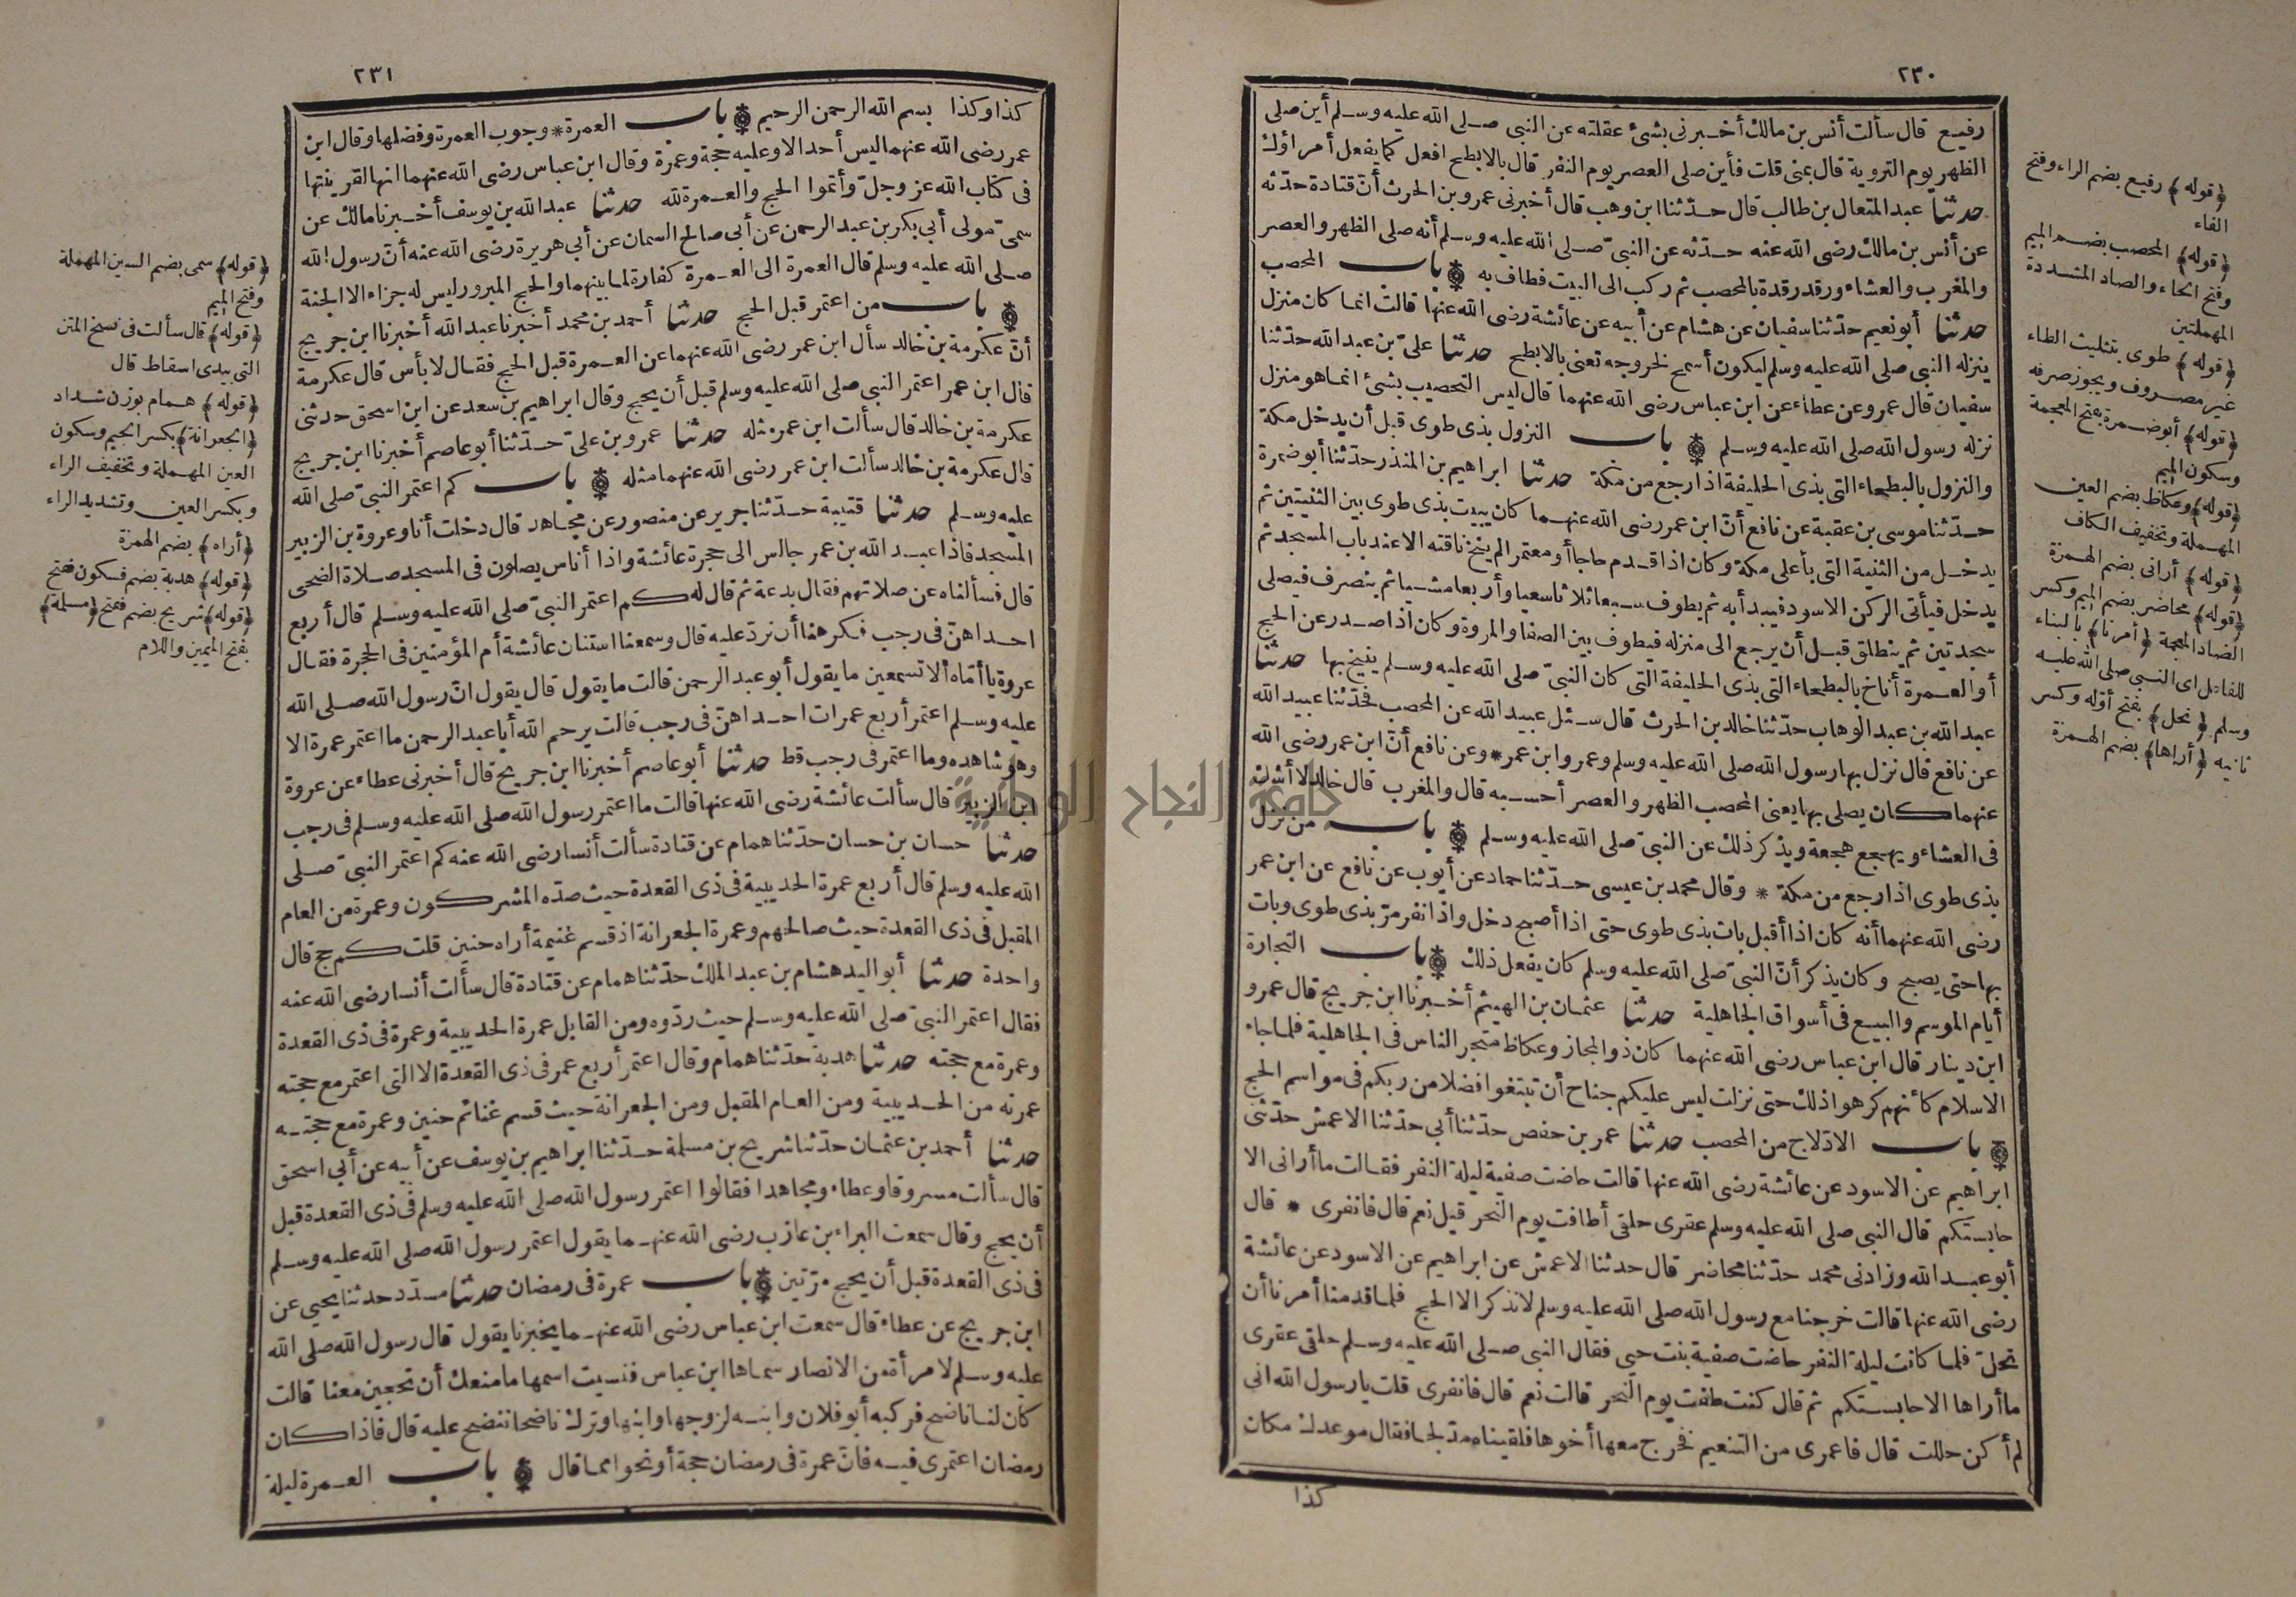 ٢٣٠
رفيع قال سألت أنس بن مالك أخبرنى بشئ عقلته عن النبى صلى الله عليه وسلم أين صلى
الظهر يوم التروية قال بمنى قلت فأين صلى العصر يوم النفر قال بالابطح افعل كما يفعل أمراؤك
حدثنا عبد المتعال بن طالب قال حدّثنا ابن وهب قال أخبرنى عمرو بن الحرث أنّ قتادة حدّثه
عن أنس بن مالك رضى الله عنه حدّثه عن النبىّ صلى الله عليه وسلم أنه صلى الظهر والعصر
والمغرب والعشاء ورقد رقدة بالمحصب ثم ركب الى البيت فطاف به باب المحصب
حدثنا أبو نعيم حدّثنا سفيان عن هشام عن أبيه عن عائشة رضى الله عنها قالت انما كان منزل
ينزله النبى صلى الله عليه وسلم ليكون أسمح لخروجه تعنى بالابطح حدثنا علىّ بن عبد الله حدّثنا
سفيان قال عمرو عن عطاء عن ابن عباس رضى الله عنهما قال ليس التحصيب بشئ انما هو منزل
نزله رسول الله صلى الله عليه وسلم باب النزول بذى طوى قبل أن يدخل مكة
والنزول بالبطحاء التى بذى الحليفة اذا رجع من مكة حدثنا ابراهيم بن المنذر حدّثنا أبو ضمرة
حدّثنا موسى بن عقبة عن نافع أنّ ابن عمر رضى الله عنهما كان يبيت بذى طوى بين الثنيتين ثم
يدخل من الثنية التى بأعلى مكة وكان اذا قدم حاجا أو معتمرا لم ينخ ناقته الا عند باب المسجد ثم
يدخل فيأتى الركن الاسود فيبدأ به ثم يطوف سبعا ثلاثا سعيا وأربعا مشيا ثم ينصرف فيصلى
سجدتين ثم ينطلق قبل أن يرجع الى منزله فيطوف بين الصفا والمروة وكان اذا صدر عن الحج
أو العمرة أناخ بالبطحاء التى بذى الحليفة التى كان النبىّ صلى الله عليه وسلم ينيخ بها حدثنا
عبد الله بن عبد الوهاب حدّثنا خالد بن الحرث قال سئل عبيد الله عن المحصب فحدّثنا عبيد الله
عن نافع قال نزل بها رسول الله صلى الله عليه وسلم وعمر وابن عمر * وعن نافع أنّ ابن عمر رضى الله
عنهما كان يصلى بها يعنى المحصب الظهر والعصر أحسبه قال والمغرب قال خالد لا أشك
فى العشاء ويهجع هجعة ويذكر ذلك عن النبىّ صلى الله عليه وسلم باب من نزل
بذى طوى اذا رجع من مكة * وقال محمد بن عيسى حدّثنا حماد عن أيوب عن نافع عن ابن عمر
رضى الله عنهما أنه كان اذا أقبل بات بذى طوى حتى اذا أصبح دخل واذا نفر مرّ بذى طوى وبات
بها حتى يصبح وكان يذكر أنّ النبىّ صلى الله عليه وسلم كان يفعل ذلك باب التجارة
أيام الموسم والبيع فى أسواق الجاهلية حدثنا عثمان بن الهيثم أخبرنا ابن جريج قال عمرو
ابن دينار قال ابن عباس رضى الله عنهما كان ذو المجاز وعكاظ متجر الناس فى الجاهلية فلما جاء
الاسلام كأنهم كرهوا ذلك حتى نزلت ليس عليكم جناح أن تبتغوا فضلا من ربكم فى مواسم الحج
باب الادّلاج من المحصب حدثنا عمر بن حفص حدّثنا أبى حدّثنا الاعمش حدّثنى
ابراهيم عن الاسود عن عائشة رضى الله عنها قالت حاضت صفية ليلة النفر فقالت ما أرانى الا
حابستكم قال النبى صلى الله عليه وسلم عقرى حلقى أطافت يوم النحر قيل نعم قال فانفرى * قال
أبو عبد الله وزادنى محمد حدّثنا محاضر قال حدثنا الاعمش عن ابراهيم عن الاسود عن عائشة
رضى الله عنها قالت خرجنا مع رسول الله صلى الله عليه وسلم لا نذكر الا الحج فلما قدمنا أمرنا أن
نحلّ فلما كانت ليلة النفر حاضت صفية بنت حيى فقال النبى صلى الله عليه وسلم حلقى عقرى
ما أراها الا حابستكم ثم قال كنت طفت يوم النحر قالت نعم قال فانفرى قلت يا رسول الله انى
لم أكن حللت قال فاعمرى من التنعيم فخرج معها أخوها فلقيناه مدّلجا فقال موعدك مكان
كذا
﴿قوله﴾ رفيع بضم الراء وفتح
الفاء
﴿قوله﴾ المحصب بضم الميم
وفتح الحاء والصاد المشددة
المهملتين
﴿قوله﴾ طوى بتثليث الطاء
غير مصروف ويجوز صرفه
﴿قوله﴾ أبو ضمرة بفتح المعجمة
وسكون الميم
﴿قوله﴾ وعكاظ بضم العين
المهملة وتخفيف الكاف
﴿قوله﴾ أرانى بضم الهمزة
﴿قوله﴾ محاضر بضم الميم وكسر
الضاد المعجمة ﴿أمرنا﴾ بالبناء
للفاعل اى النبى صلى الله عليه
وسلم ﴿نحل﴾ بفتح أوّله وكسر
ثانيه ﴿أراها﴾ بضم الهمزة
٢٣١
كذا وكذا بسم الله الرحمن الرحيم باب العمرة * وجوب العمرة وفضلها وقال ابن
عمر رضى الله عنهما ليس أحد الا وعليه حجة وعمرة وقال ابن عباس رضى الله عنهما انها لقرينتها
فى كتاب الله عز وجلّ وأتموا الحج والعمرة لله حدثنا عبد الله بن يوسف أخبرنا مالك عن
سمىّ مولى أبى بكر بن عبد الرحمن عن أبى صالح السمان عن أبى هريرة رضى الله عنه أنّ رسول الله
صلى الله عليه وسلم قال العمرة الى العمرة كفارة لما بينهما والحج المبرور ليس له جزاء الا الجنة
باب من اعتمر قبل الحج حدثنا أحمد بن محمد أخبرنا عبد الله أخبرنا ابن جريج
أنّ عكرمة بن خالد سأل ابن عمر رضى الله عنهما عن العمرة قبل الحج فقال لا بأس قال عكرمة
قال ابن عمر اعتمر النبى صلى الله عليه وسلم قبل أن يحج وقال ابراهيم بن سعد عن ابن اسحق حدثنى
عكرمة بن خالد قال سألت ابن عمر مثله حدثنا عمرو بن علىّ حدّثنا أبو عاصم أخبرنا ابن جريج
قال عكرمة بن خالد سألت ابن عمر رضى الله عنهما مثله باب كم اعتمر النبىّ صلى الله
عليه وسلم حدثنا قتيبة حدّثنا جرير عن منصور عن مجاهد قال دخلت أنا وعروة بن الزبير
المسجد فاذا عبد الله بن عمر جالس الى حجرة عائشة واذا أناس يصلون فى المسجد صلاة الضحى
قال فسألناه عن صلاتهم فقال بدعة ثم قال له كم اعتمر النبىّ صلى الله عليه وسلم قال أربع
احداهنّ فى رجب فكرهنا أن نردّ عليه قال وسمعنا استنان عائشة أم المؤمنين فى الحجرة فقال
عروة يا أمّاه ألا تسمعين ما يقول أبو عبد الرحمن قالت ما يقول قال يقول انّ رسول الله صلى الله
عليه وسلم اعتمر أربع عمرات احداهنّ فى رجب قالت يرحم الله أبا عبد الرحمن ما اعتمر عمرة الا
وهو شاهده وما اعتمر فى رجب قط حدثنا أبو عاصم أخبرنا ابن جريج قال أخبرنى عطاء عن عروة
ابن الزبير قال سألت عائشة رضى الله عنها قالت ما اعتمر رسول الله صلى الله عليه وسلم فى رجب
حدثنا حسان بن حسان حدّثنا همام عن قتادة سألت أنسا رضى الله عنه كم اعتمر النبىّ صلى
الله عليه وسلم قال أربع عمرة الحديبية فى ذى القعدة حيث صدّه المشركون وعمرة من العام
المقبل فى ذى القعدة حيث صالحهم وعمرة الجعرانة اذ قسم غنيمة أراه حنين قلت كم حج قال
واحدة حدثنا أبو اليد هشام بن عبد الملك حدّثنا همام عن قتادة قال سألت أنسا رضى الله عنه
فقال اعتمر النبىّ صلى الله عليه وسلم حيث ردّوه ومن القابل عمرة الحديبية وعمرة فى ذى القعدة
وعمرة مع حجته حدثنا هدبة حدّثنا همام وقال اعتمر أربع عمر فى ذى القعدة الا التى اعتمر مع حجته
عمرته من الحديبية ومن العام المقبل ومن الجعرانة حيث قسم غنائم حنين وعمرة مع حجته
حدثنا أحمد بن عثمان حدّثنا شريح بن مسلمة حدّثنا ابراهيم بن يوسف عن أبيه عن أبى اسحق
قال سألت مسروقا وعطاء ومجاهدا فقالوا اعتمر رسول الله صلى الله عليه وسلم فى ذى القعدة قبل
أن يحج وقال سمعت البراء بن عازب رضى الله عنهما يقول اعتمر رسول الله صلى الله عليه وسلم
فى ذى القعدة قبل أن يحج مرّتين باب عمرة فى رمضان حدثنا مسدّد حدثنا يحيى عن
ابن جريج عن عطاء قال سمعت ابن عباس رضى الله عنهما يخبرنا يقول قال رسول الله صلى الله
عليه وسلم لامرأة من الانصار سماها ابن عباس فنسيت اسمها ما منعك أن تحجين معنا قالت
كان لنا ناضح فركبه أبو فلان وابنه لزوجها وابنها وترك ناضحا ننضح عليه قال فاذا كان
رمضان اعتمرى فيه فانّ عمرة فى رمضان حجة أو نحوا مما قال باب العمرة ليلة
﴿قوله﴾ سمى بضم السين المهملة
وفتح الميم
﴿قوله﴾ قال سألت فى نسخ المتن
التى بيدى اسقاط قال
﴿قوله﴾ همام بوزن شداد
﴿الجعرانة﴾ بكسر الجيم وسكون
العين المهملة وتخفيف الراء
وبكسر العين وتشديد الراء
﴿أراه﴾ بضم الهمزة
﴿قوله﴾ هدبة بضم فسكون ففتح
﴿قوله﴾ شريح بضم ففتح ﴿مسلمة﴾
بفتح الميمين واللام
جامعة النجاح الوطنية